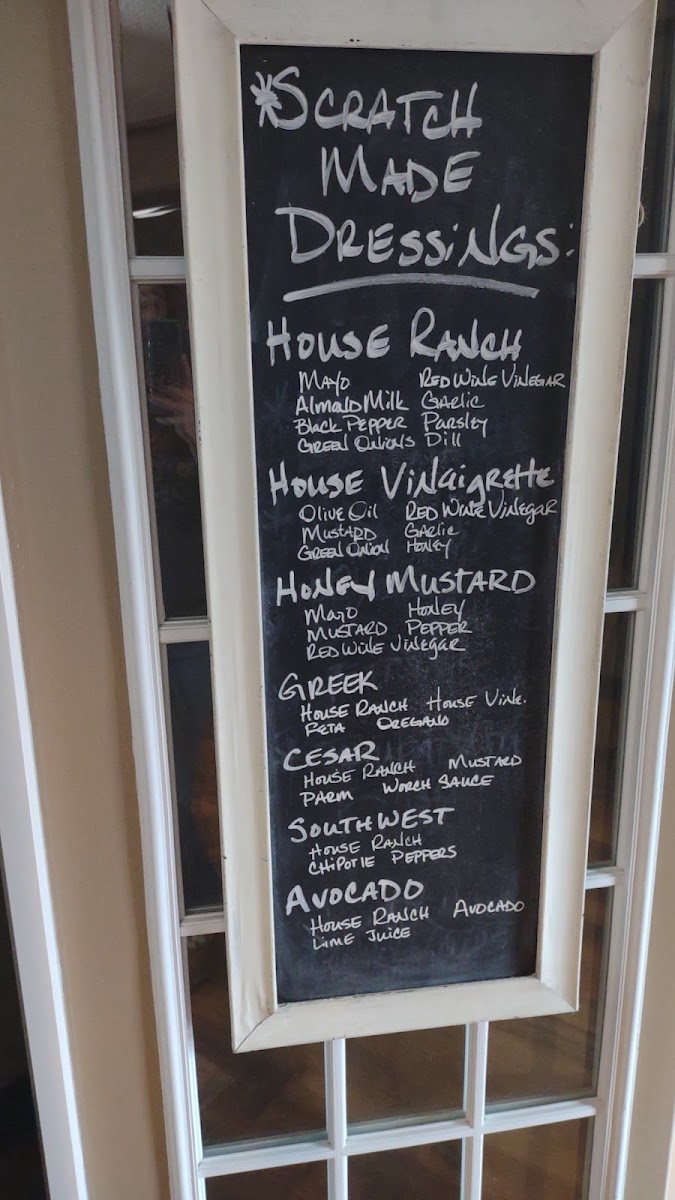 *SCRATCH
MADE
DRESSiNGS:
HOUSE RANCH
MAYO RED WINE VINEGAR
Almond Milk GARLIC
Black PEPPER PARSLEY
GREEN ONIONS Dill
HOUSE ViNAigRETTE
Olive Oil RED WINE VINEGAR
MUSTARD GARLIC
GREEN ONION HONEY
HONEY MUSTARD
MAYO HONEY
MUSTARD PEPPER
RED WINE VINEGAR
GREEK
HOUSE RANCH HOUSE VINE.
FETA OREGANO
CESAR
HOUSE RANCH MUSTARD
PARM WORCH SAUCE
SOUTHWEST
HOUSE RANCH
CHiPOTlE PEPPERS
AVOCADO
HOUSE RANCH AVOCADO
LIME JUICE